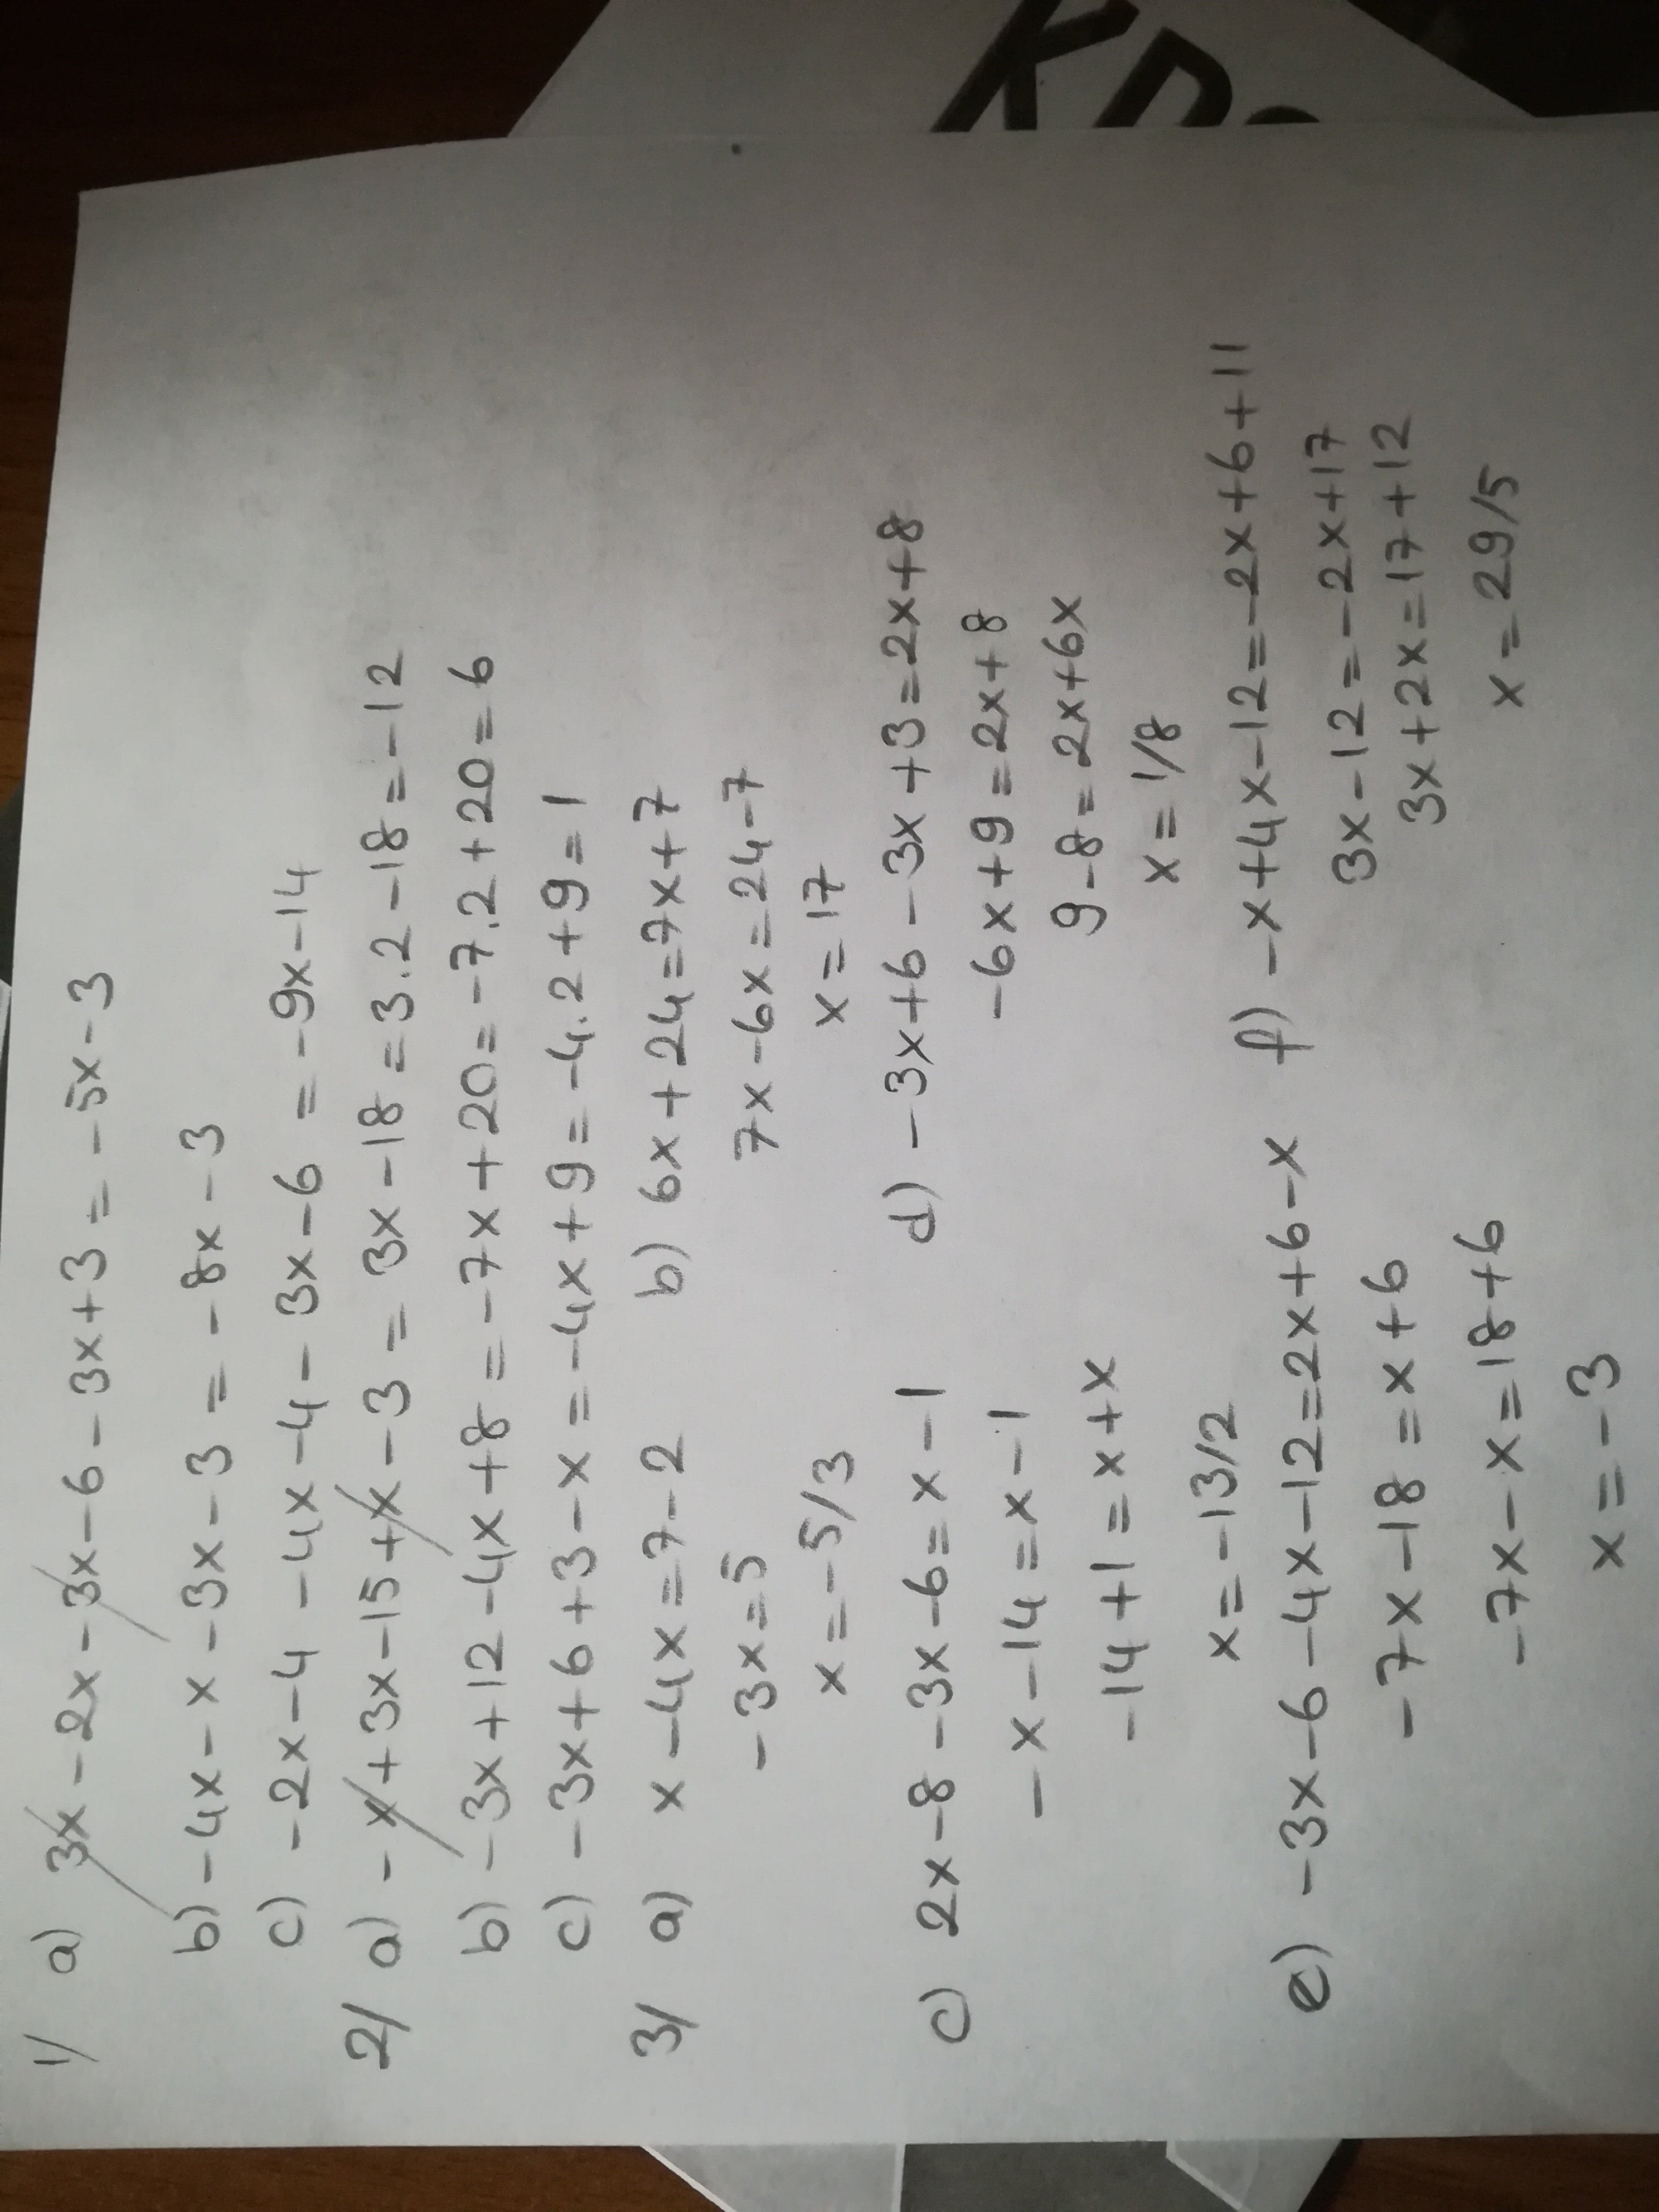 1/ a) 3x-2x-3x-6-3x+3=-5x-3
b) -4x-x-3x-3=-8x-3
c) -2x-4-4x-4-3x-6=-9x-14
2/ a) -x+3x-15+x-3=3x-18=3.2-18=-12
b) -3x+12-4x+8=-7x+20=-7.2+20=6
c) -3x+6+3-x=-4x+9=-4.2+9=1
3/ a) x-4x=7-2 b) 6x+24=7x+7
-3x=5 7x-6x=24-7
x=-5/3 x=17
c) 2x-8-3x-6=x-1 d) -3x+6-3x+3=2x+8
-x-14=x-1 -6x+9=2x+8
-14+1=x+x 9-8=2x+6x
x=-13/2 x=1/8
e) -3x-6-4x-12=2x+6-x f) -x+4x-12=-2x+6+11
-7x-18=x+6 3x-12=-2x+17
-7x-x=18+6 3x+2x=17+12
x=-3 x=29/5